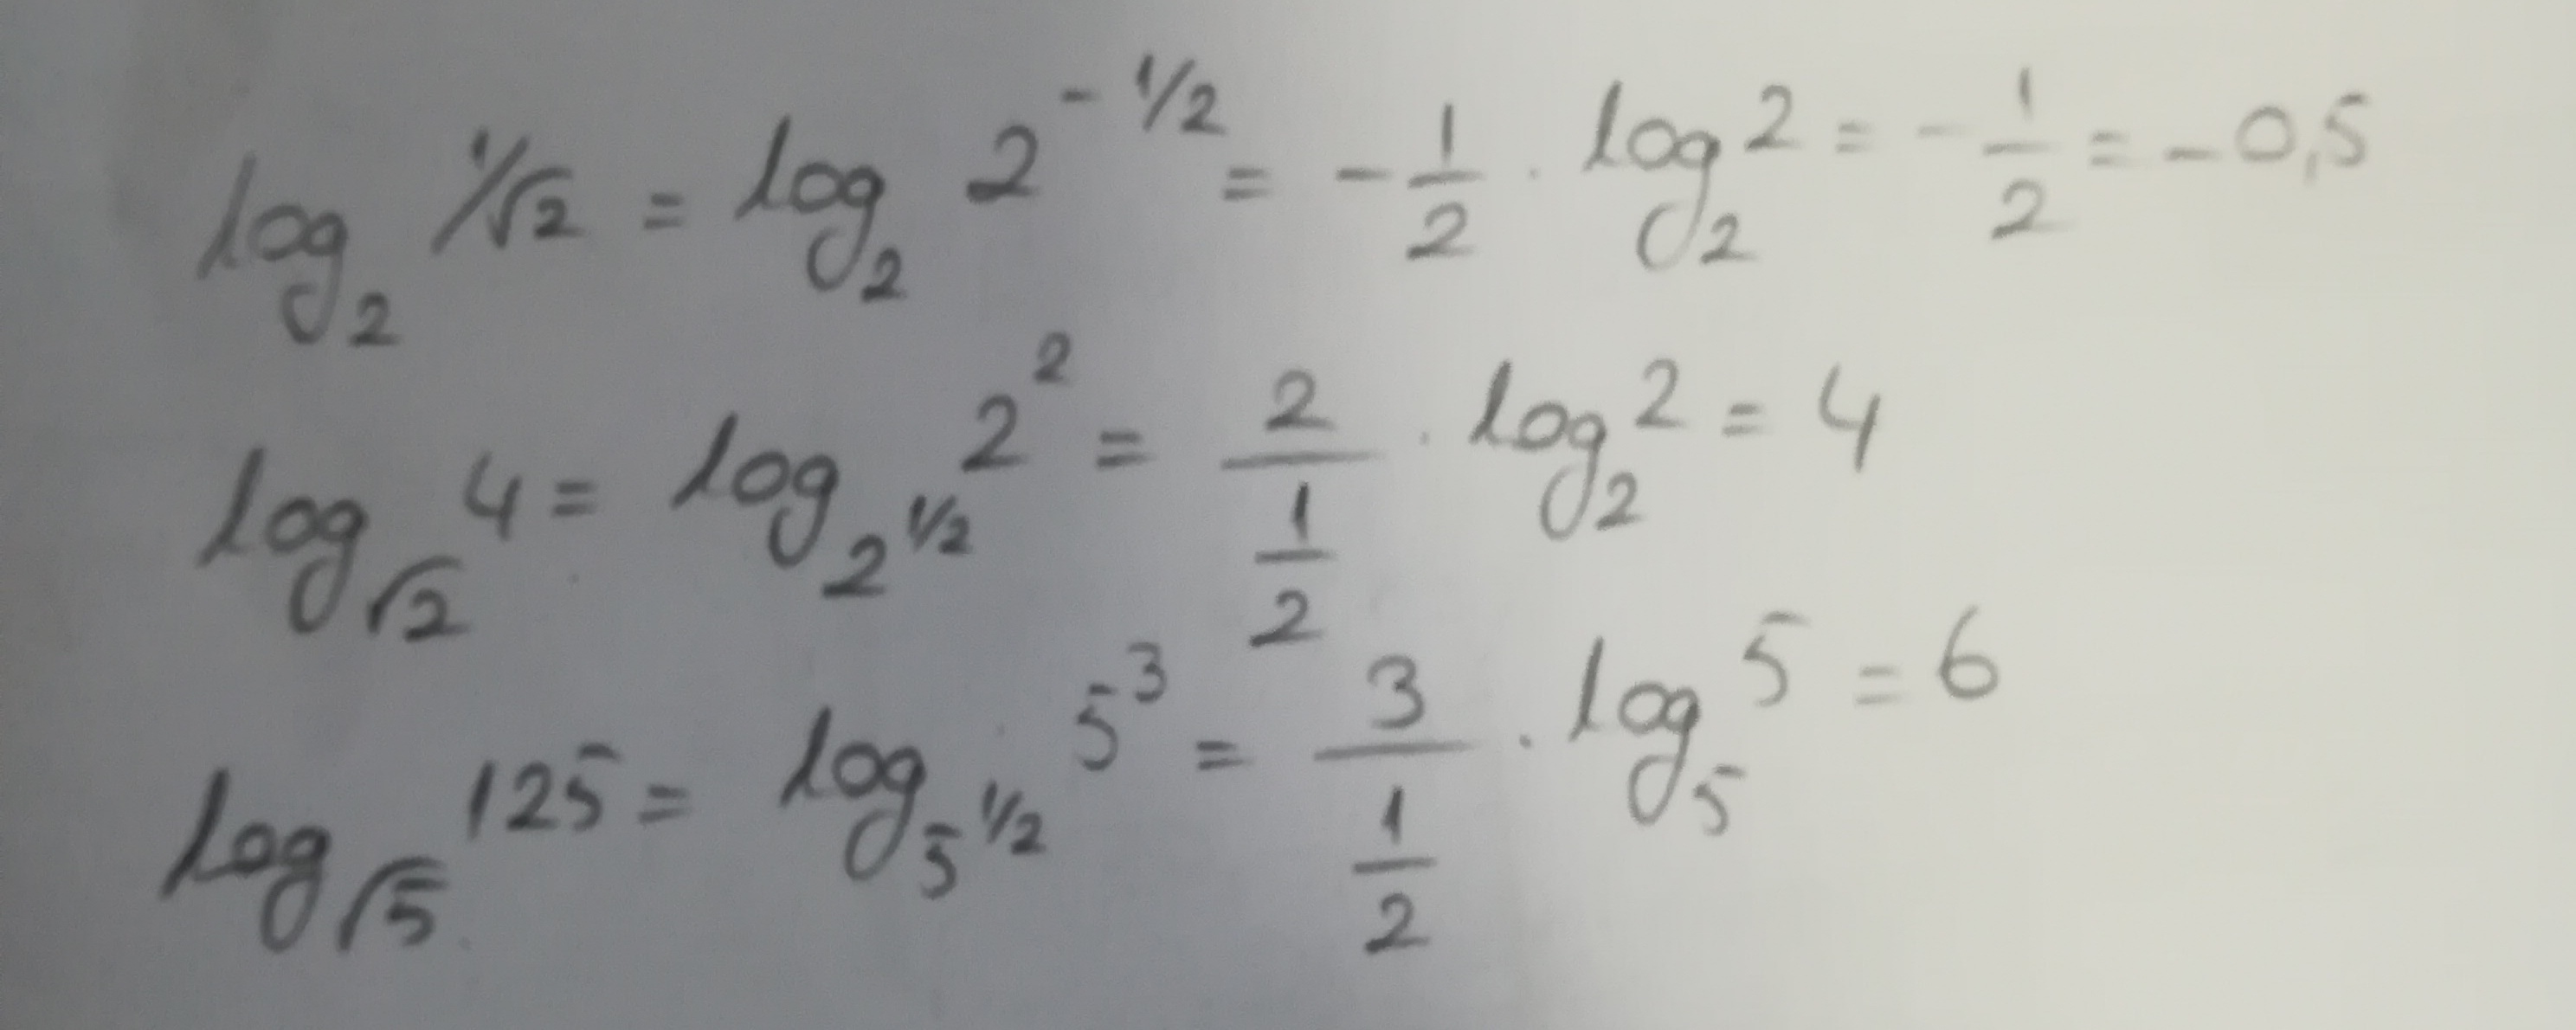 log₂ 1/√2 = log₂ 2^(-1/2) = -1/2 · log₂ 2 = -1/2 = -0,5
log_√2 4 = log_(2^(1/2)) 2² = 2/(1/2) · log₂ 2 = 4
log_√5 125 = log_(5^(1/2)) 5³ = 3/(1/2) · log₅ 5 = 6